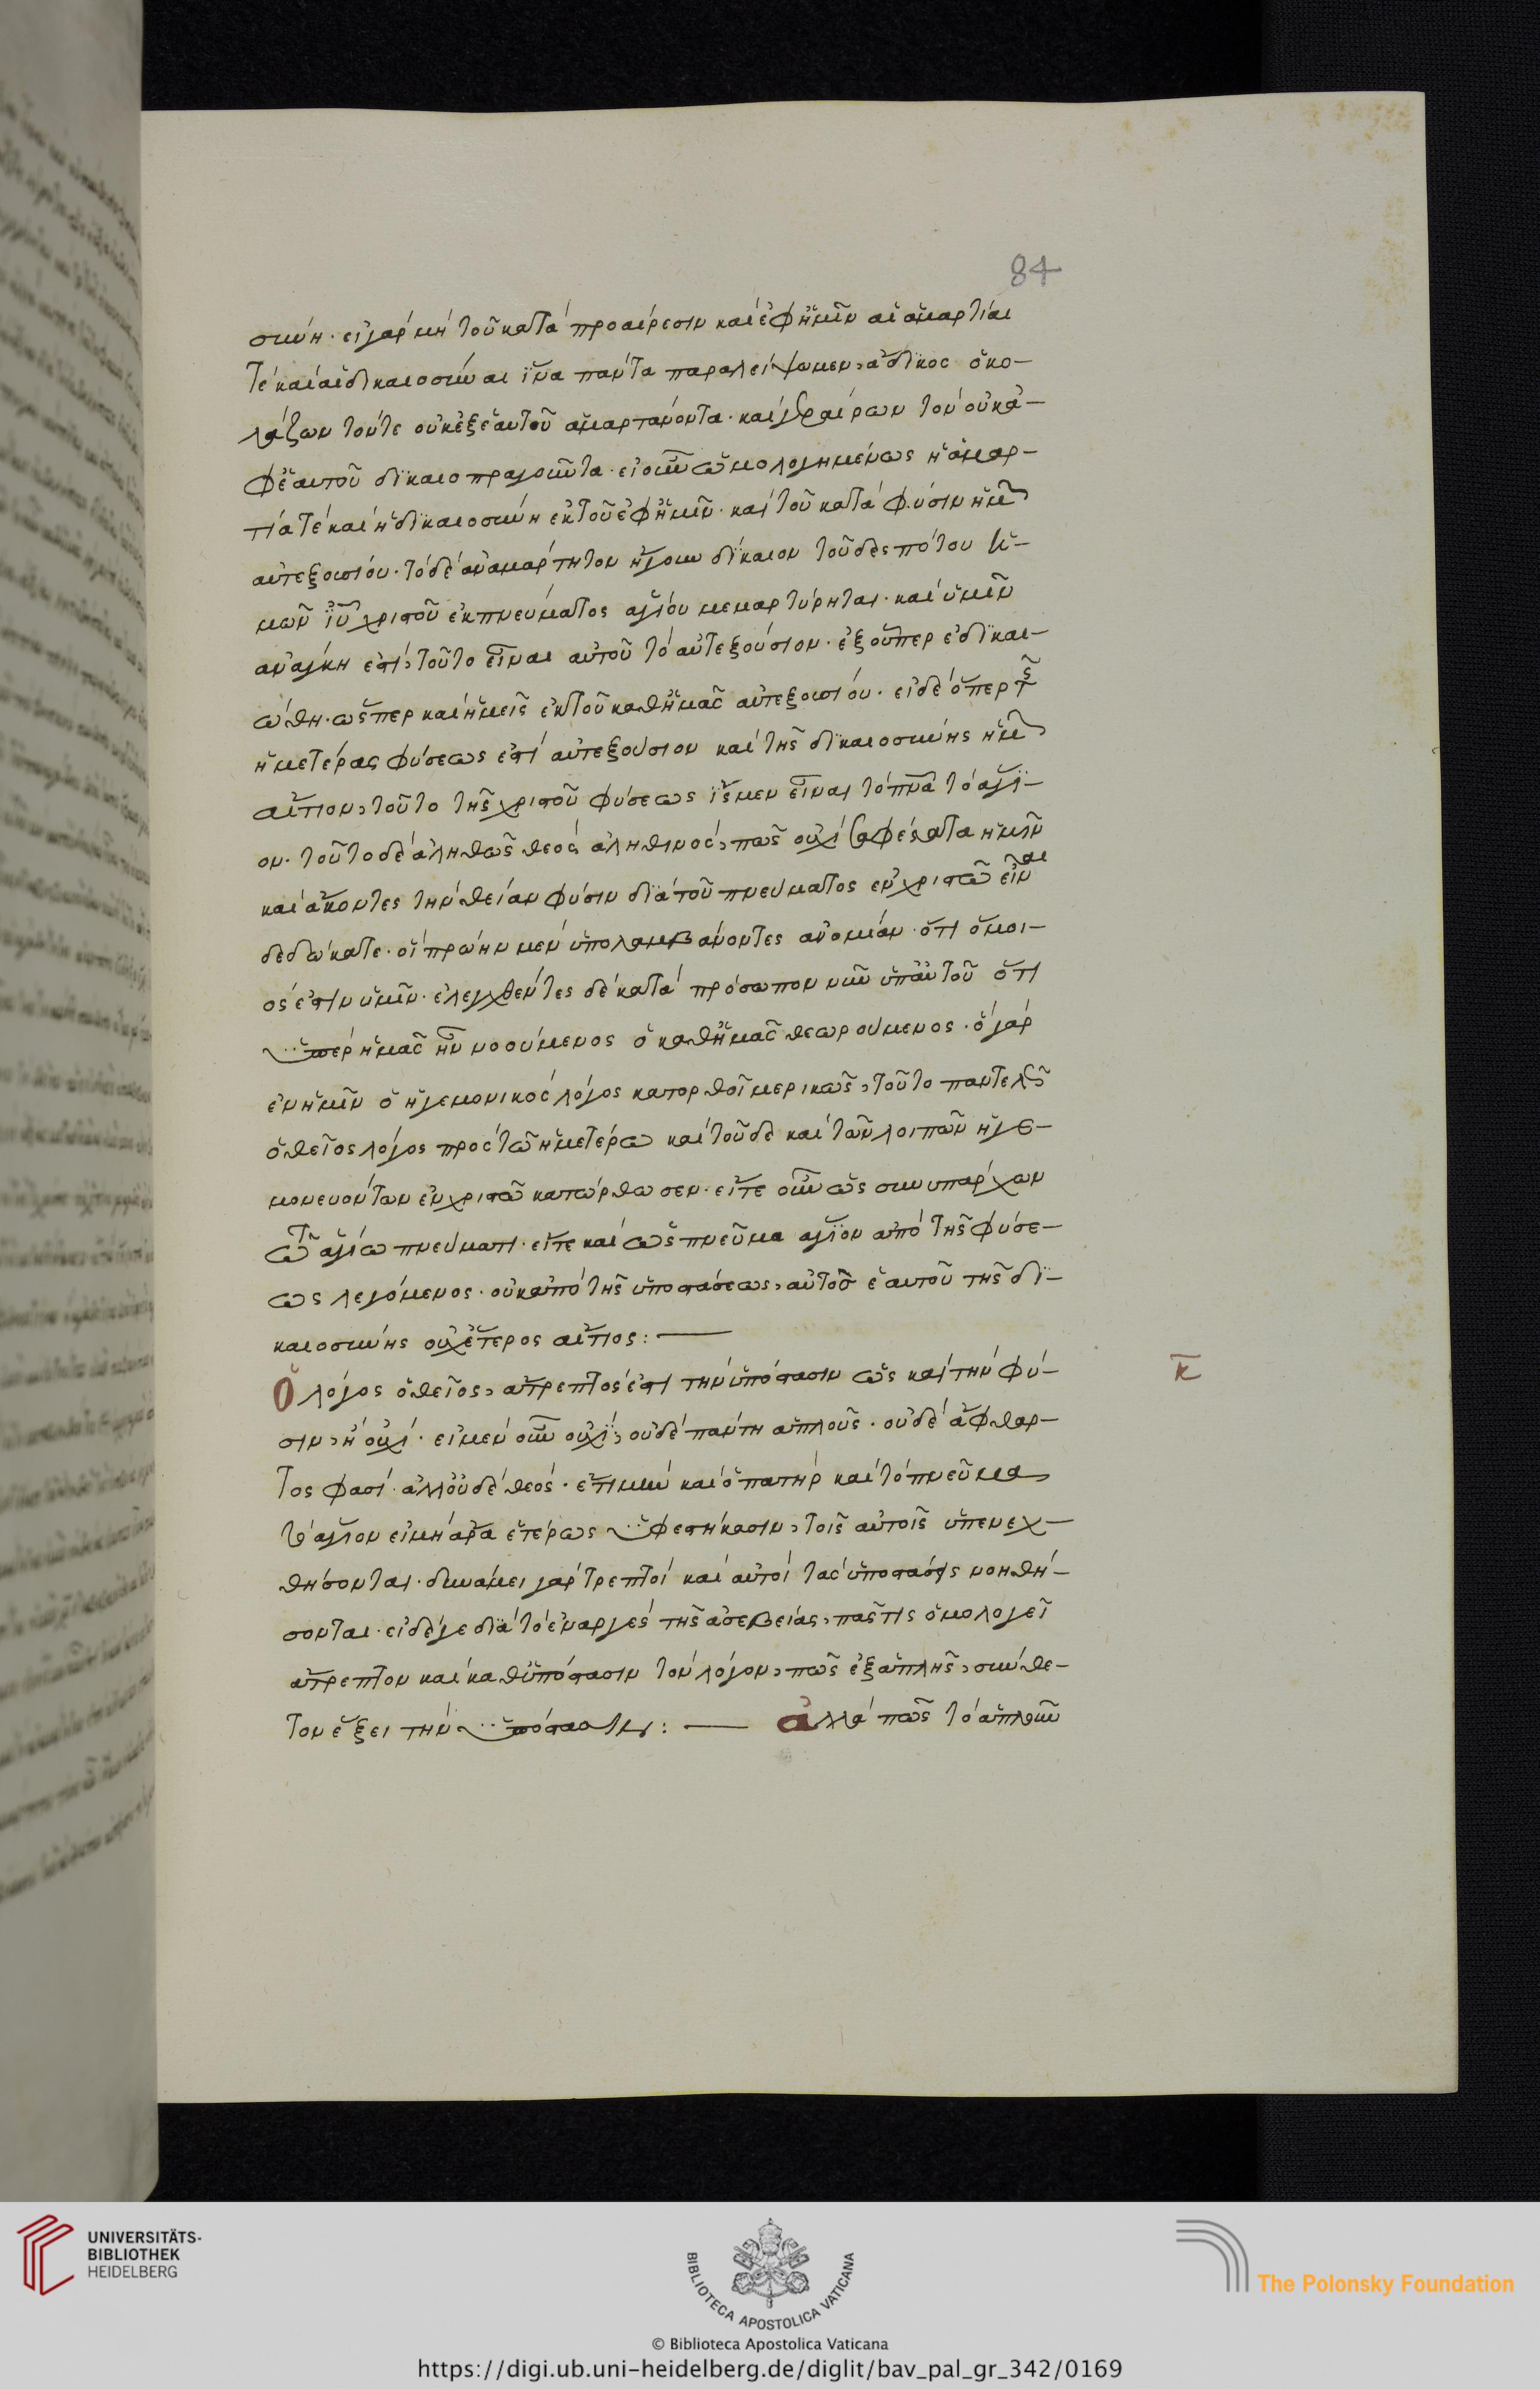 84
σύνη· εἰ γὰρ μὴ τοῦ κατὰ προαίρεσιν καὶ ἐφ' ἡμῖν αἱ ἁμαρτίαι
τὲ καὶ αἱ δικαιοσύναι ἵνα πάντα παραλείψωμεν, ἄδικος ὁ κο-
λάζων τόν τε οὐκ ἐξ ἑαυτοῦ ἁμαρτάνοντα· καὶ γεραίρων τὸν οὐκ ἀ-
φ' ἑαυτοῦ δικαιοπραγοῦντα· εἰ οὖν ὡμολογημένως ἡ ἁμαρ-
τία τὲ καὶ ἡ δικαιοσύνη ἐκ τοῦ ἐφ' ἡμῖν· καὶ τοῦ κατὰ φύσιν ἡμῶν
αὐτεξουσίου· τὸ δὲ ἀναμάρτητον ἤγουν δίκαιον τοῦ δεσπότου ἡ-
μῶν ἰῦ χριστοῦ ἐκ πνεύματος ἁγίου μεμαρτύρηται· καὶ ὑμῖν
ἀνάγκη ἐστὶ, τοῦτο εἶναι αὐτοῦ τὸ αὐτεξούσιον· ἐξ οὗπερ ἐδικαι-
ώθη· ὥσπερ καὶ ἡμεῖς ἐκ τοῦ καθ' ἡμᾶς αὐτεξουσίου· εἰ δὲ ὅπερ τῆς
ἡμετέρας φύσεως ἐστὶ αὐτεξούσιον καὶ τῆς δικαιοσύνης ἡμῶν
αἴτιον, τοῦτο τῆς χριστοῦ φύσεως ἴσμεν εἶναι τὸ πνᾶ τὸ ἅγι-
ον· τοῦτο δὲ ἀληθῶς θεὸς ἀληθινὸς, πῶς οὐχὶ σαφέστατα ἡμῖν
καὶ ἄκοντες τὴν θείαν φύσιν διὰ τοῦ πνεύματος ἐν χριστῶ εἶναι
δεδώκατε· οἱ πρώην μὲν ὑπολαμβάνοντες ἀνομίαν· ὅτι ὅμοι-
ός ἐστιν ὑμῖν· ἐλεγχθέντες δὲ κατὰ πρόσωπον νῦν ὑπ' αὐτοῦ ὅτι
ὑπὲρ ἡμᾶς ἦν νοούμενος ὁ καθ' ἡμᾶς θεωρούμενος· ὃ γὰρ
ἐν ἡμῖν ὁ ἡγεμονικὸς λόγος κατορθοῖ μερικῶς, τοῦτο παντελῶς
ὁ θεῖος λόγος πρὸς τῶ ἡμετέρω καὶ τοῦδε καὶ τῶν λοιπῶν ἡγε-
μονευόντων ἐν χριστῶ κατώρθωσεν· εἴτε οὖν ὡς συνυπάρχων
τῶ ἁγίω πνεύματι· εἴτε καὶ ὡς πνεῦμα ἅγιον ἀπὸ τῆς φύσε-
ως λεγόμενος· οὐκ ἀπὸ τῆς ὑποστάσεως, αὐτὸς ἑαυτοῦ τῆς δι-
καιοσύνης οὐχ' ἕτερος αἴτιος: —
Ὁ λόγος ὁ θεῖος, ἄτρεπτός ἐστι τὴν ὑπόστασιν ὡς καὶ τὴν φύ-
σιν, ἢ οὐχί· εἰ μὲν οὖν οὐχὶ, οὐδὲ πάντη ἁπλοῦς· οὐδὲ ἄφθαρ-
τος φασί· ἀλλ' οὐδὲ θεός· ἔτι μὴν καὶ ὁ πατὴρ καὶ τὸ πνεῦμα
τὸ ἅγιον εἰ μὴ ἄρα ἑτέρως ὑφεστήκασιν, τοῖς αὐτοῖς ὑπενεχ-
θήσονται· δυνάμει γὰρ τρεπτοὶ καὶ αὐτοὶ τὰς ὑποστάσεις νοηθή-
σονται· εἰ δέ γε διὰ τὸ ἐναργὲς τῆς ἀσεβείας, πᾶς τις ὁμολογεῖ
ἄτρεπτον καὶ καθ' ὑπόστασιν τὸν λόγον, πῶς ἐξ ἁπλῆς, σύνθε-
τον ἕξει τὴν ὑπόστασιν: — ἀλλὰ πῶς τὸ ἁπλοῦν
κ̅
UNIVERSITÄTS-
BIBLIOTHEK
HEIDELBERG
BIBLIOTECA APOSTOLICA VATICANA
The Polonsky Foundation
© Biblioteca Apostolica Vaticana
https://digi.ub.uni-heidelberg.de/diglit/bav_pal_gr_342/0169